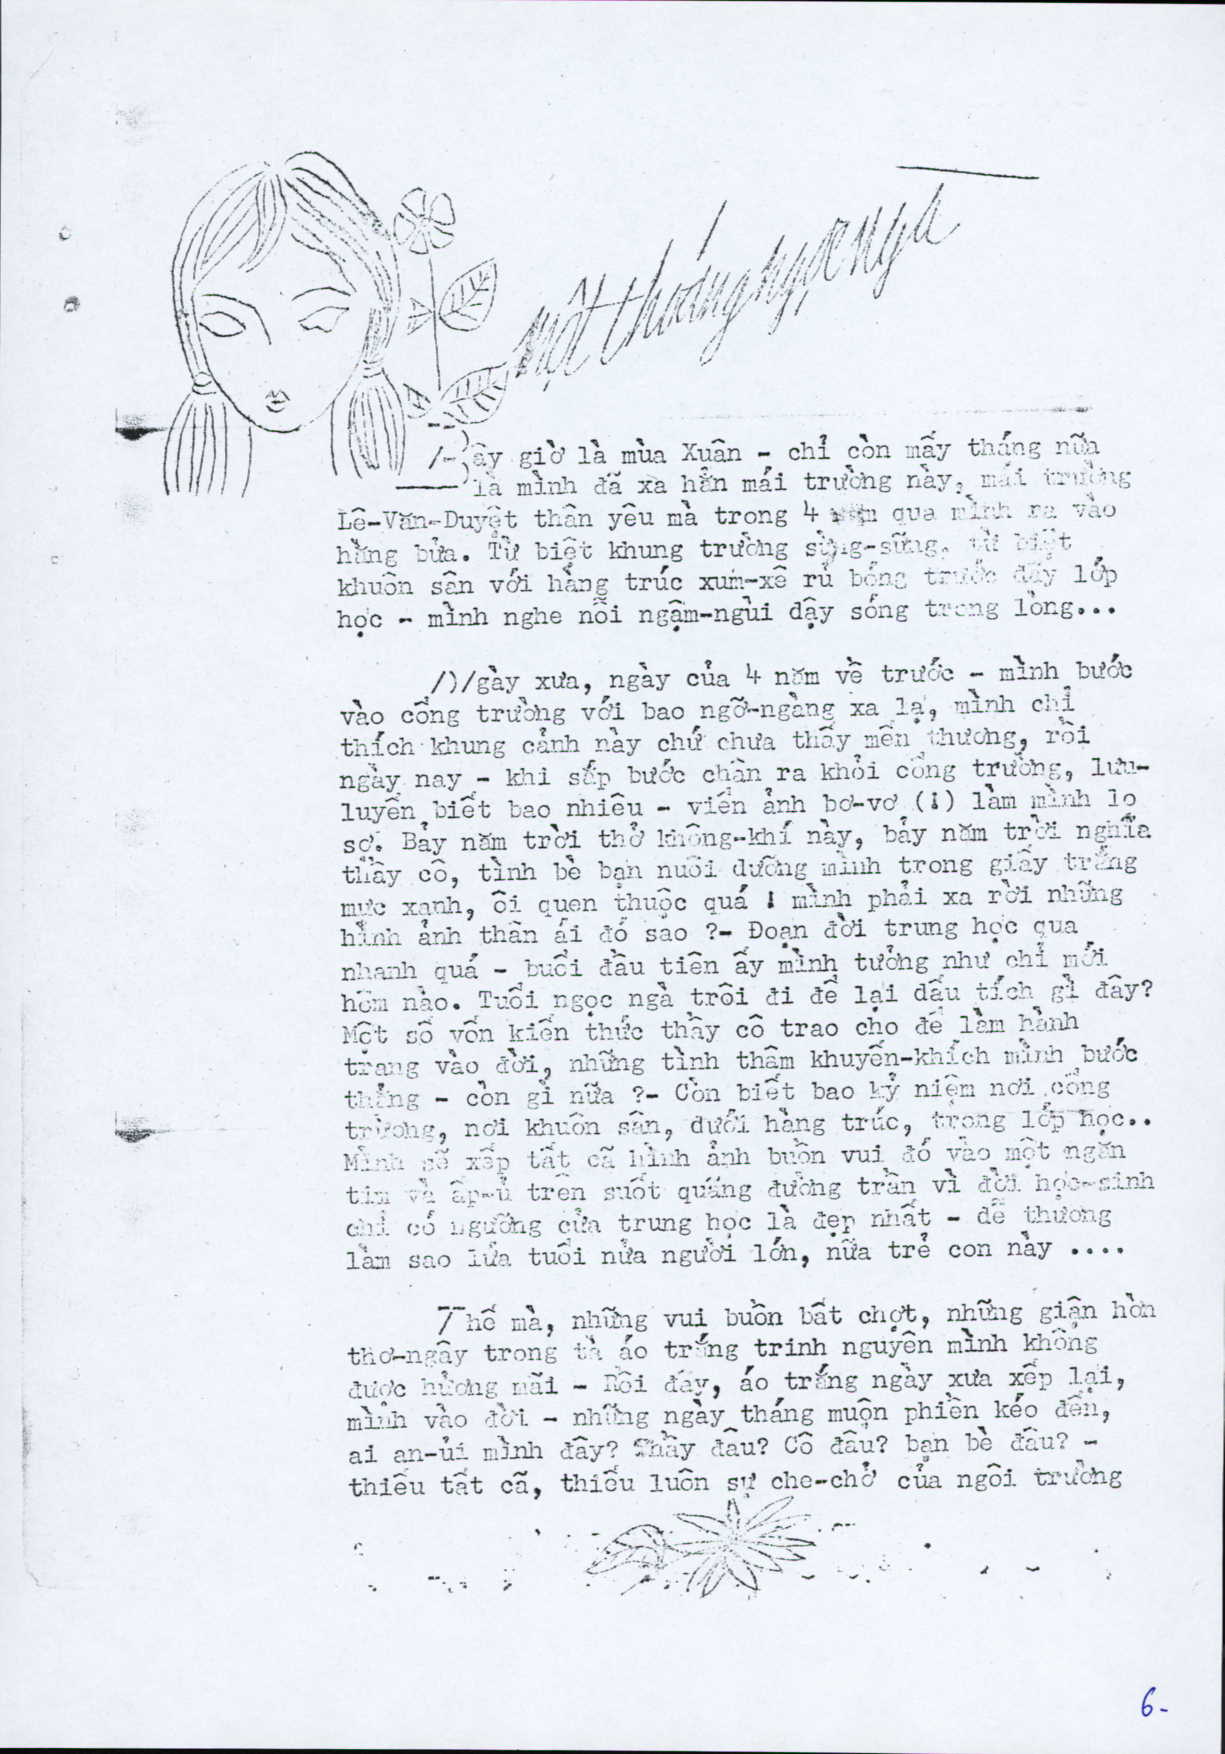 một thoáng ngọc ngà
/-)ây giờ là mùa Xuân - chỉ còn mấy tháng nữa
là mình đã xa hẳn mái trường này, mái trường
Lê-Văn-Duyệt thân yêu mà trong 4 năm qua mình ra vào
hằng bửa. Từ biệt khung trường sừng-sững, từ biệt
khuôn sân với hàng trúc xum-xê rủ bóng trước dãy lớp
học - mình nghe nỗi ngậm-ngùi dậy sóng trong lòng...
/)/gày xưa, ngày của 4 năm về trước - mình bước
vào cổng trường với bao ngỡ-ngàng xa lạ, mình chỉ
thích khung cảnh này chứ chưa thấy mến thương, rồi
ngày nay - khi sắp bước chân ra khỏi cổng trường, lưu-
luyến biết bao nhiêu - viển ảnh bơ-vơ (!) làm mình lo
sợ. Bảy năm trời thở không-khí này, bảy năm trời nghĩa
thầy cô, tình bè bạn nuôi dưỡng mình trong giấy trắng
mực xanh, ôi quen thuộc quá ! mình phải xa rời những
hình ảnh thân ái đó sao ?- Đoạn đời trung học qua
nhanh quá - buổi đầu tiên ấy mình tưởng như chỉ mới
hôm nào. Tuổi ngọc ngà trôi đi để lại dấu tích gì đây?
Một số vốn kiến thức thầy cô trao cho để làm hành
trang vào đời, những tình thâm khuyến-khích mình bước
thẳng - còn gì nữa ?- Còn biết bao kỷ niệm nơi cổng
trường, nơi khuôn sân, dưới hàng trúc, trong lớp học..
Mình sẽ xếp tất cã hình ảnh buồn vui đó vào một ngăn
tim và ấp-ủ trên suốt quãng đường trần vì đời học-sinh
chỉ có ngưỡng cửa trung học là đẹp nhất - dễ thương
làm sao lứa tuổi nửa người lớn, nữa trẻ con này ....
Thế mà, những vui buồn bất chợt, những giận hờn
thơ-ngây trong tà áo trắng trinh nguyên mình không
được hưởng mãi - Rồi đây, áo trắng ngày xưa xếp lại,
mình vào đời - những ngày tháng muộn phiền kéo đến,
ai an-ủi mình đây? Thầy đâu? Cô đâu? bạn bè đâu? -
thiếu tất cã, thiếu luôn sự che-chở của ngôi trường
6-